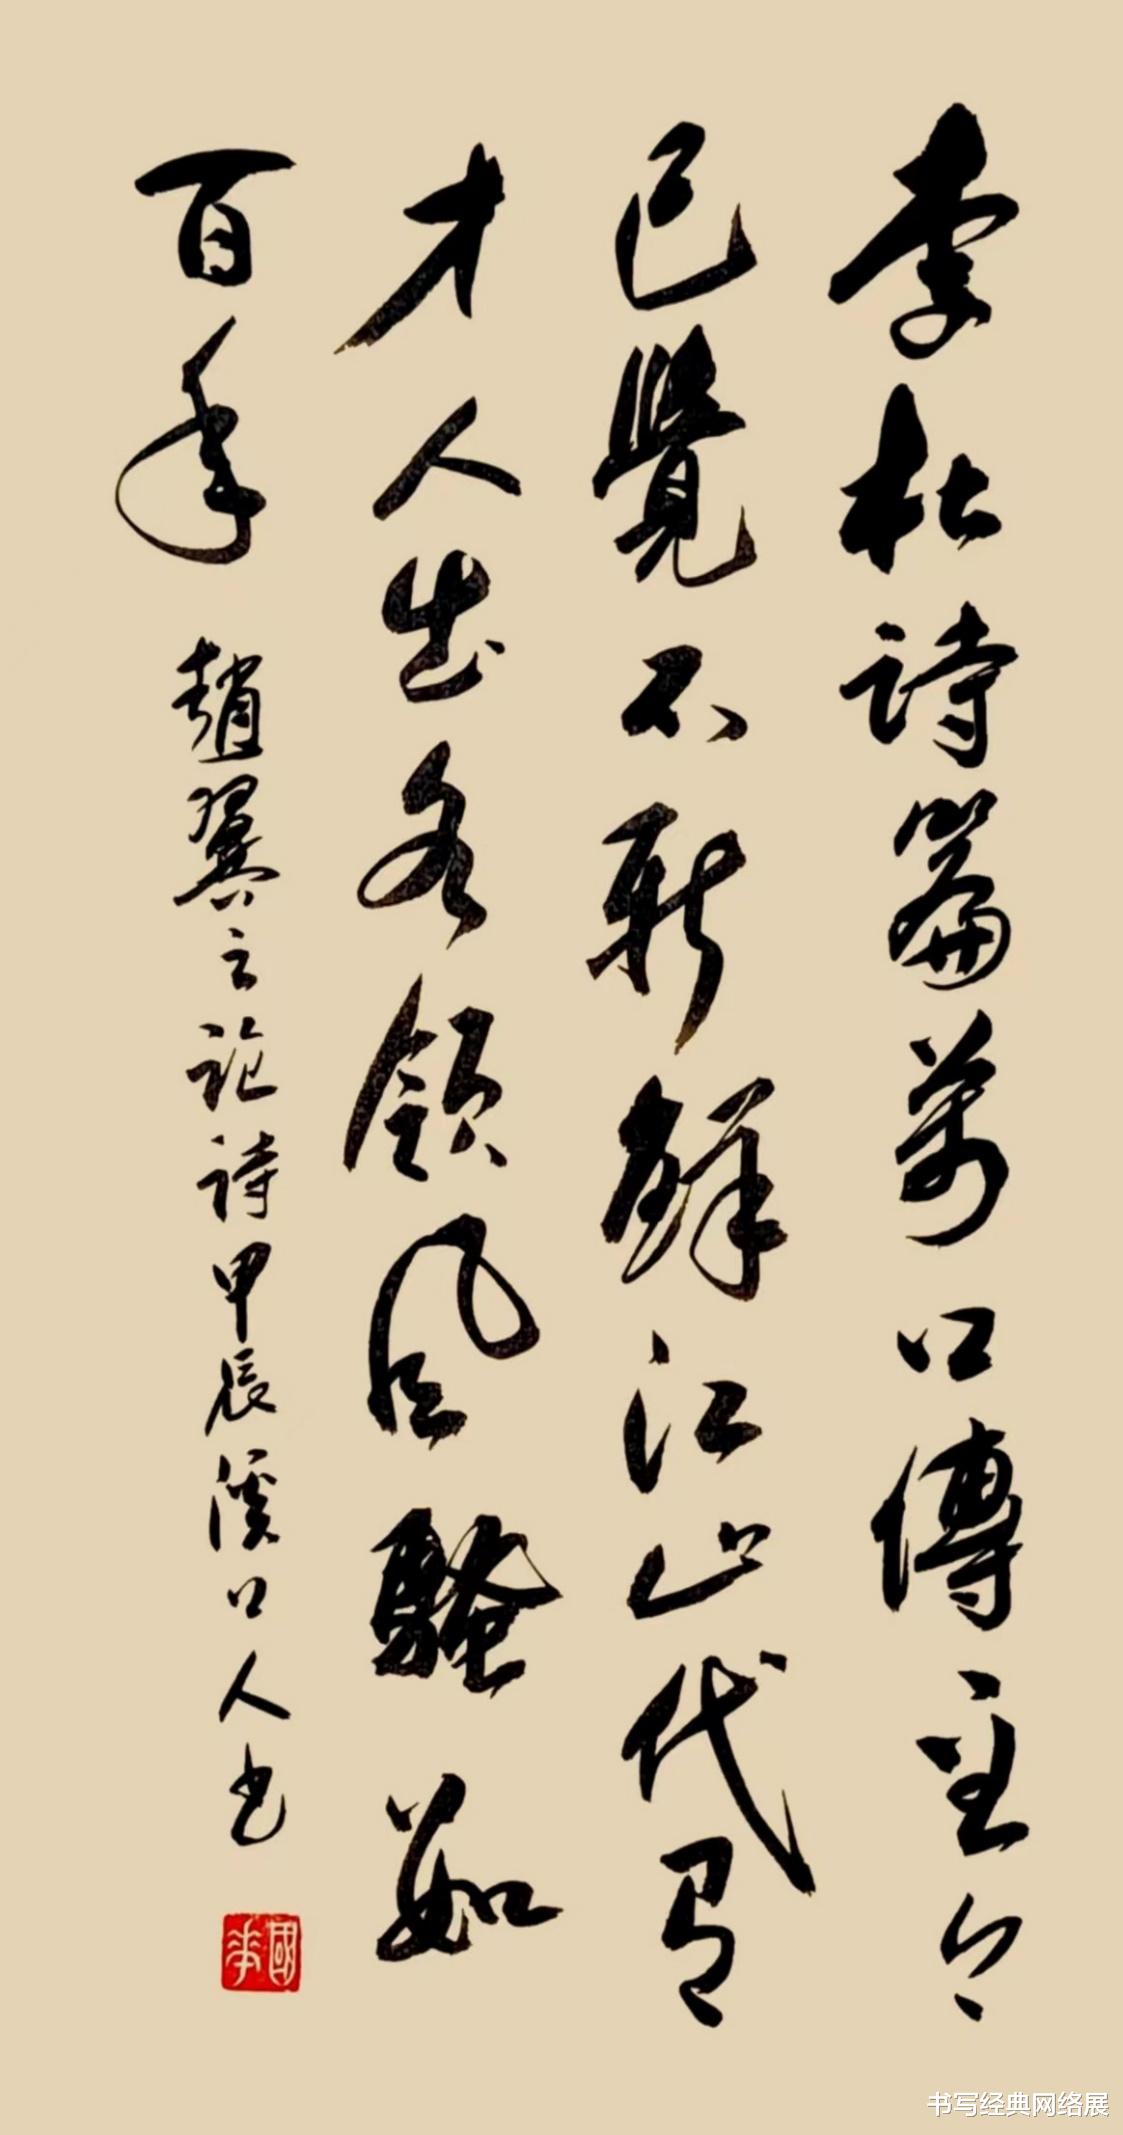 李杜詩篇萬口傳至今
已覺不新鮮江山代有
才人出各領風騷數
百年 趙翼之論詩甲辰溪口人書
國
书写经典网络展